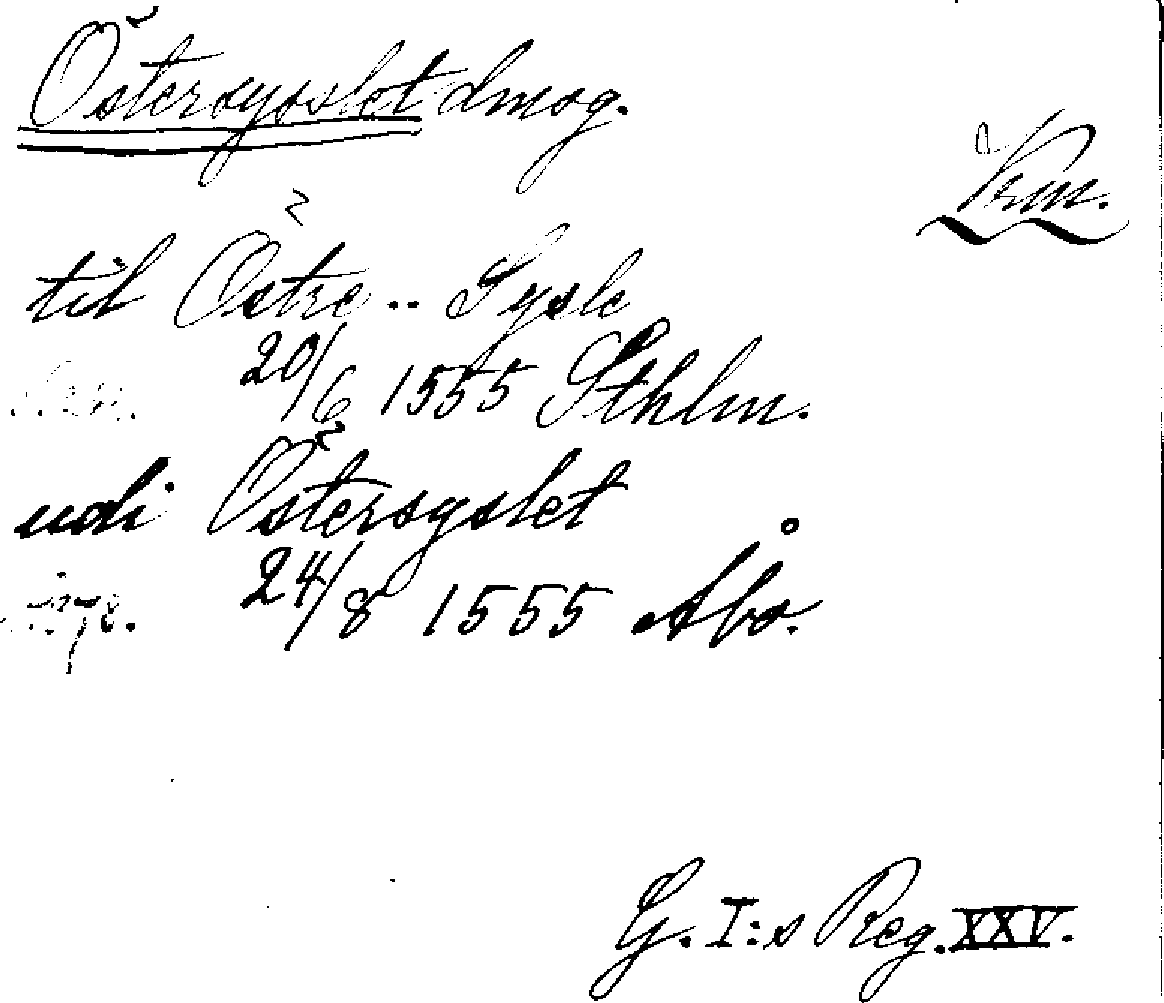 Östersysslet dmsg.
Vrm.
til Östre.. Sysle
20/6 1555 Sthlm.
udi Östersyslet
24/8 1555 Åbo.
G. I:s Reg. XXV.